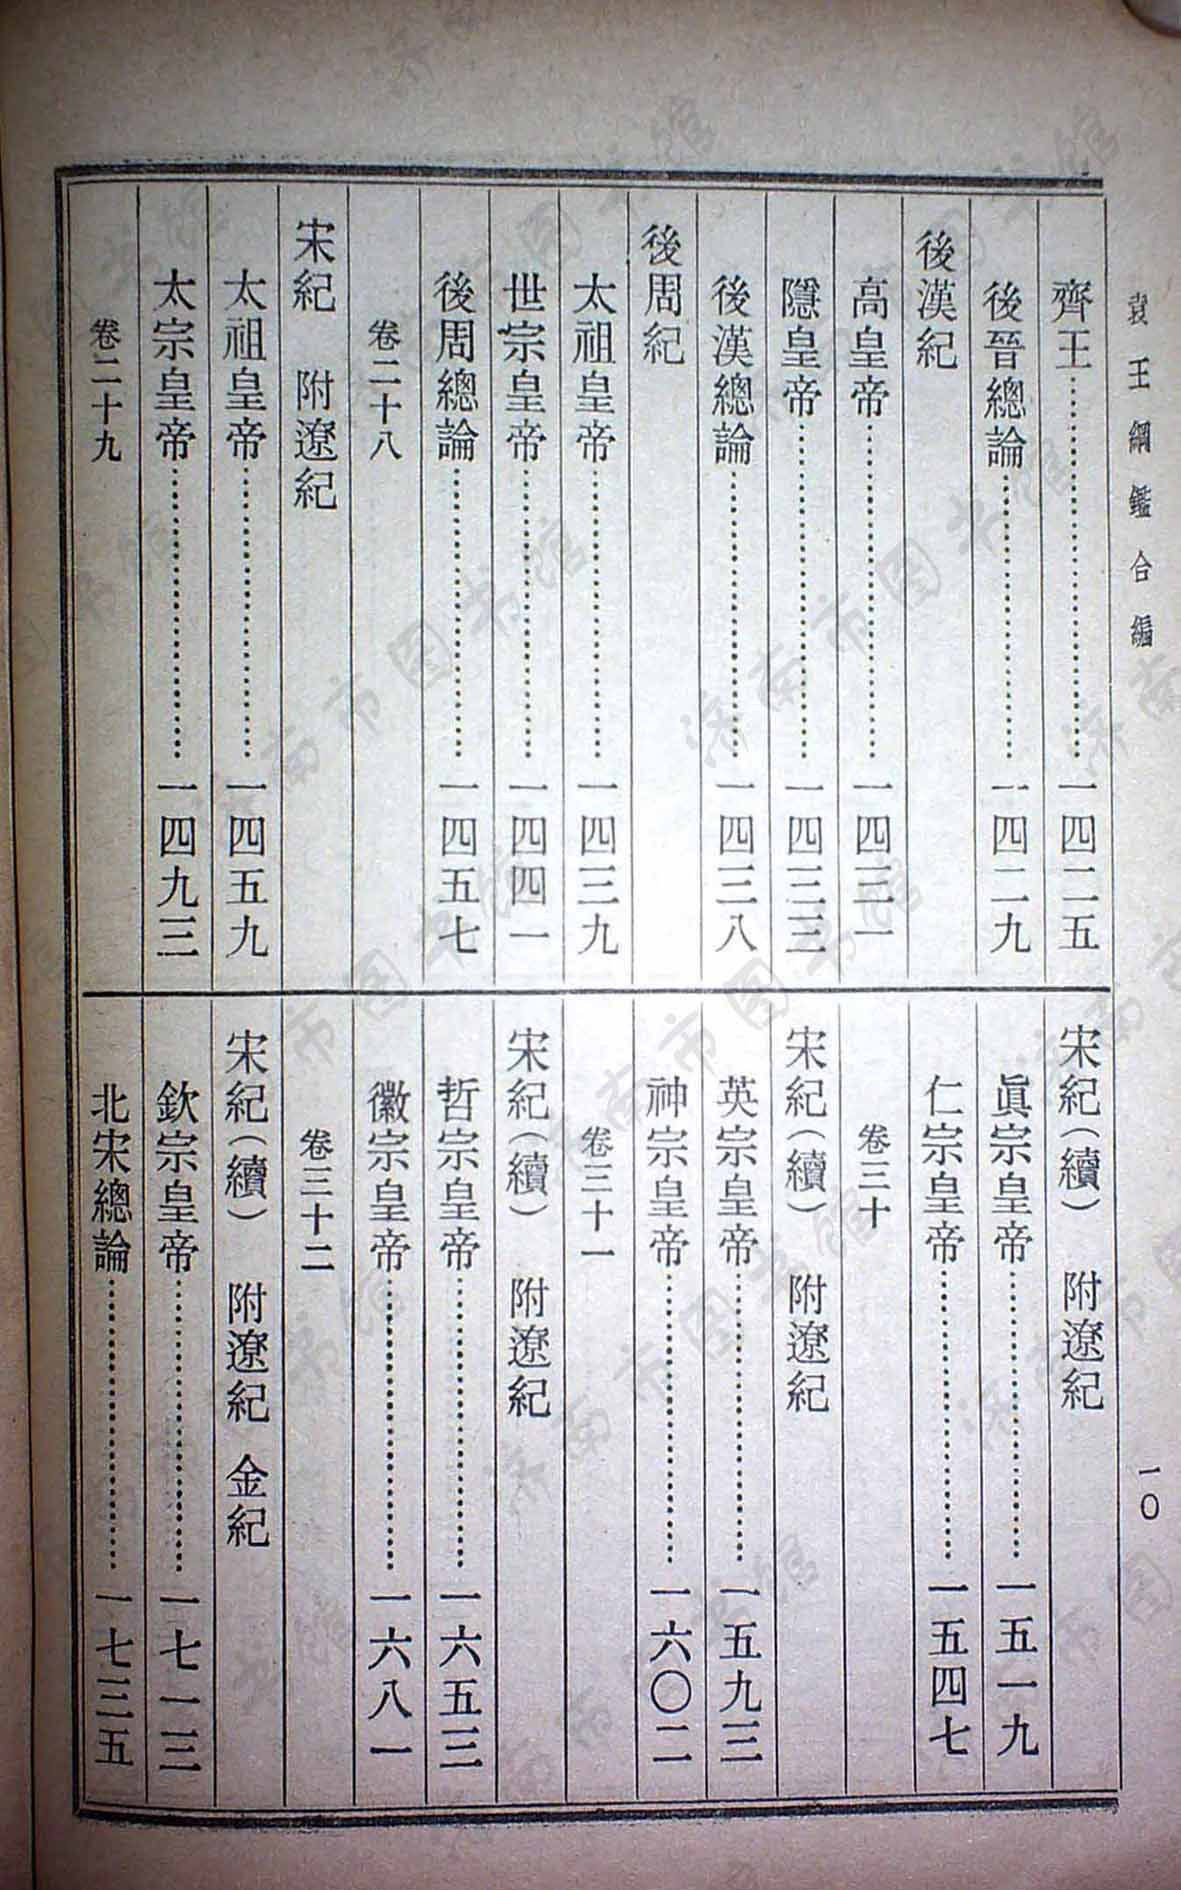 袁王綱鑑合編
一〇
齊王⋯⋯⋯⋯一四二五
後晉總論⋯⋯⋯⋯一四二九
後漢紀
高皇帝⋯⋯⋯⋯一四三一
隱皇帝⋯⋯⋯⋯一四三三
後漢總論⋯⋯⋯⋯一四三八
後周紀
太祖皇帝⋯⋯⋯⋯一四三九
世宗皇帝⋯⋯⋯⋯一四四一
後周總論⋯⋯⋯⋯一四五七
卷二十八
宋紀 附遼紀
太祖皇帝⋯⋯⋯⋯一四五九
太宗皇帝⋯⋯⋯⋯一四九三
卷二十九
宋紀(續) 附遼紀
眞宗皇帝⋯⋯⋯⋯一五一九
仁宗皇帝⋯⋯⋯⋯一五四七
卷三十
宋紀(續) 附遼紀
英宗皇帝⋯⋯⋯⋯一五九三
神宗皇帝⋯⋯⋯⋯一六〇二
卷三十一
宋紀(續) 附遼紀
哲宗皇帝⋯⋯⋯⋯一六五三
徽宗皇帝⋯⋯⋯⋯一六八一
卷三十二
宋紀(續) 附遼紀 金紀
欽宗皇帝⋯⋯⋯⋯一七一三
北宋總論⋯⋯⋯⋯一七三五
济南市图书馆